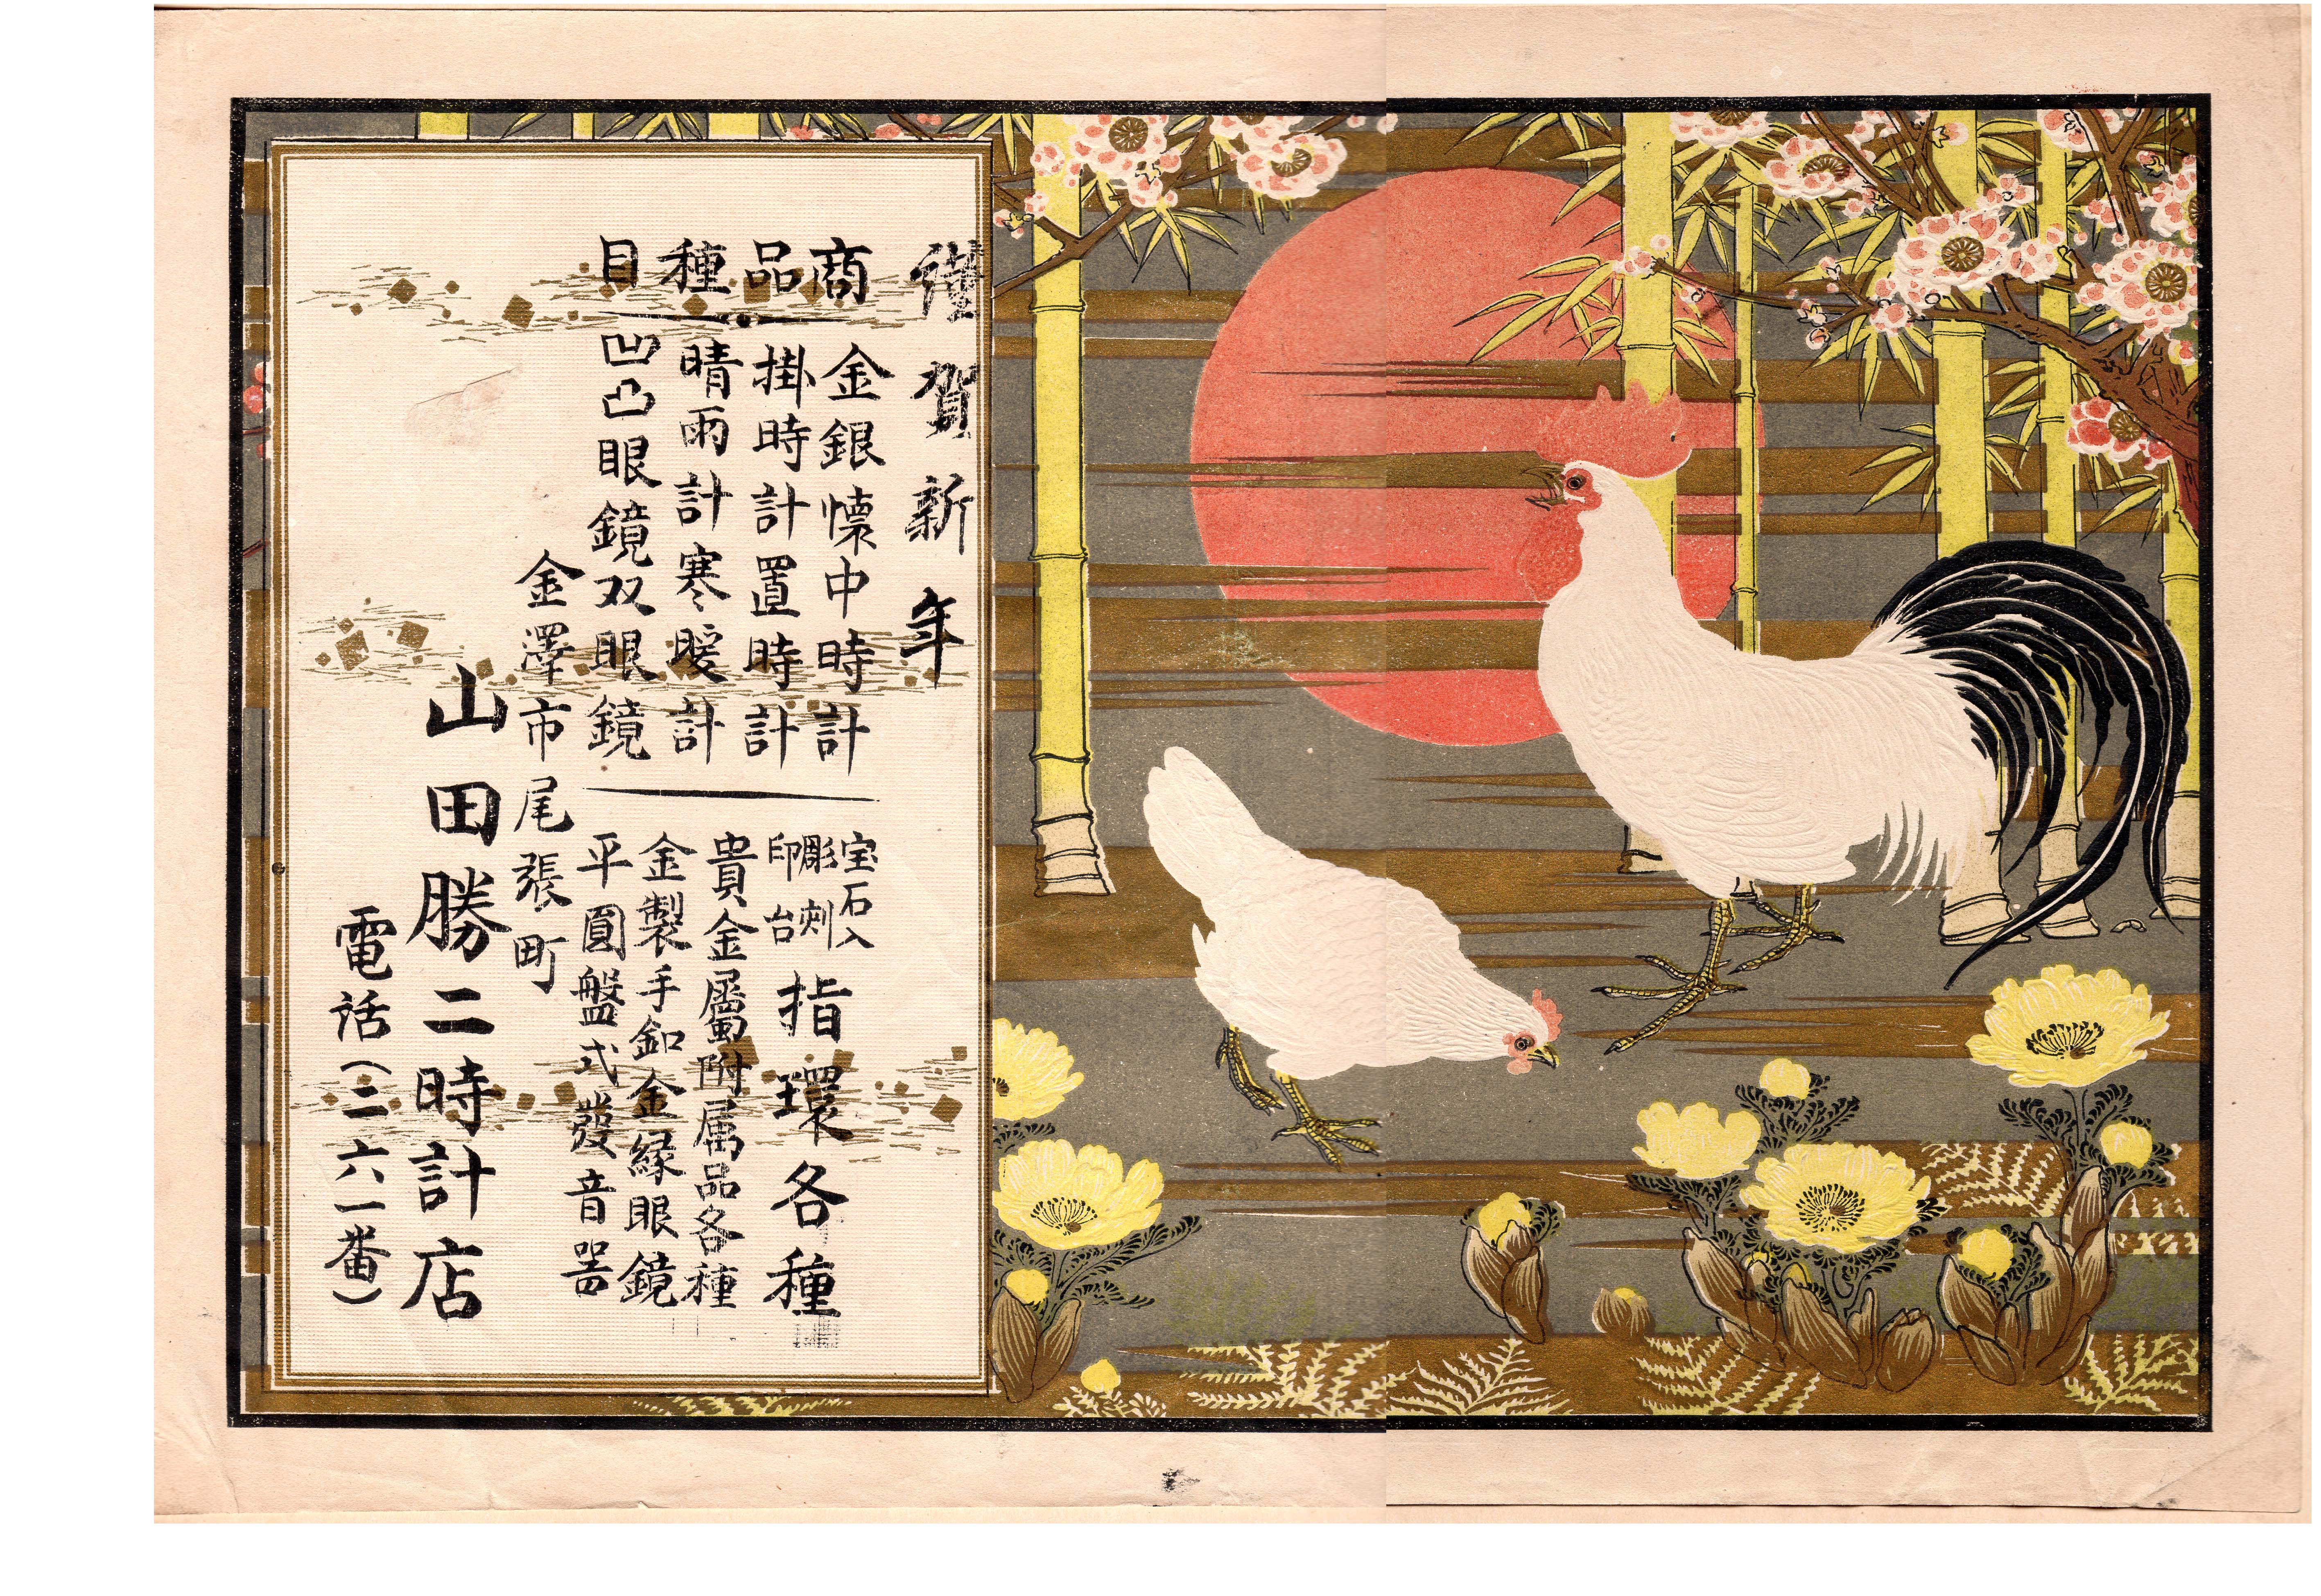 謹賀新年
商品種目
金銀懐中時計
掛時計置時計
晴雨計寒暖計
凹凸眼鏡双眼鏡
宝石入
彫刻
印台
指環各種
貴金屬附属品各種
金製手釦金縁眼鏡
平圓盤式發音器
金澤市尾張町
山田勝二時計店
電話(二六一番)